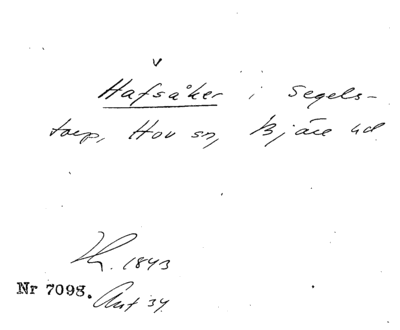 v
Hafsåker i Segels-
torp, Hov sn, Bjäre hd
1843
Nr 7098. Ant 34.